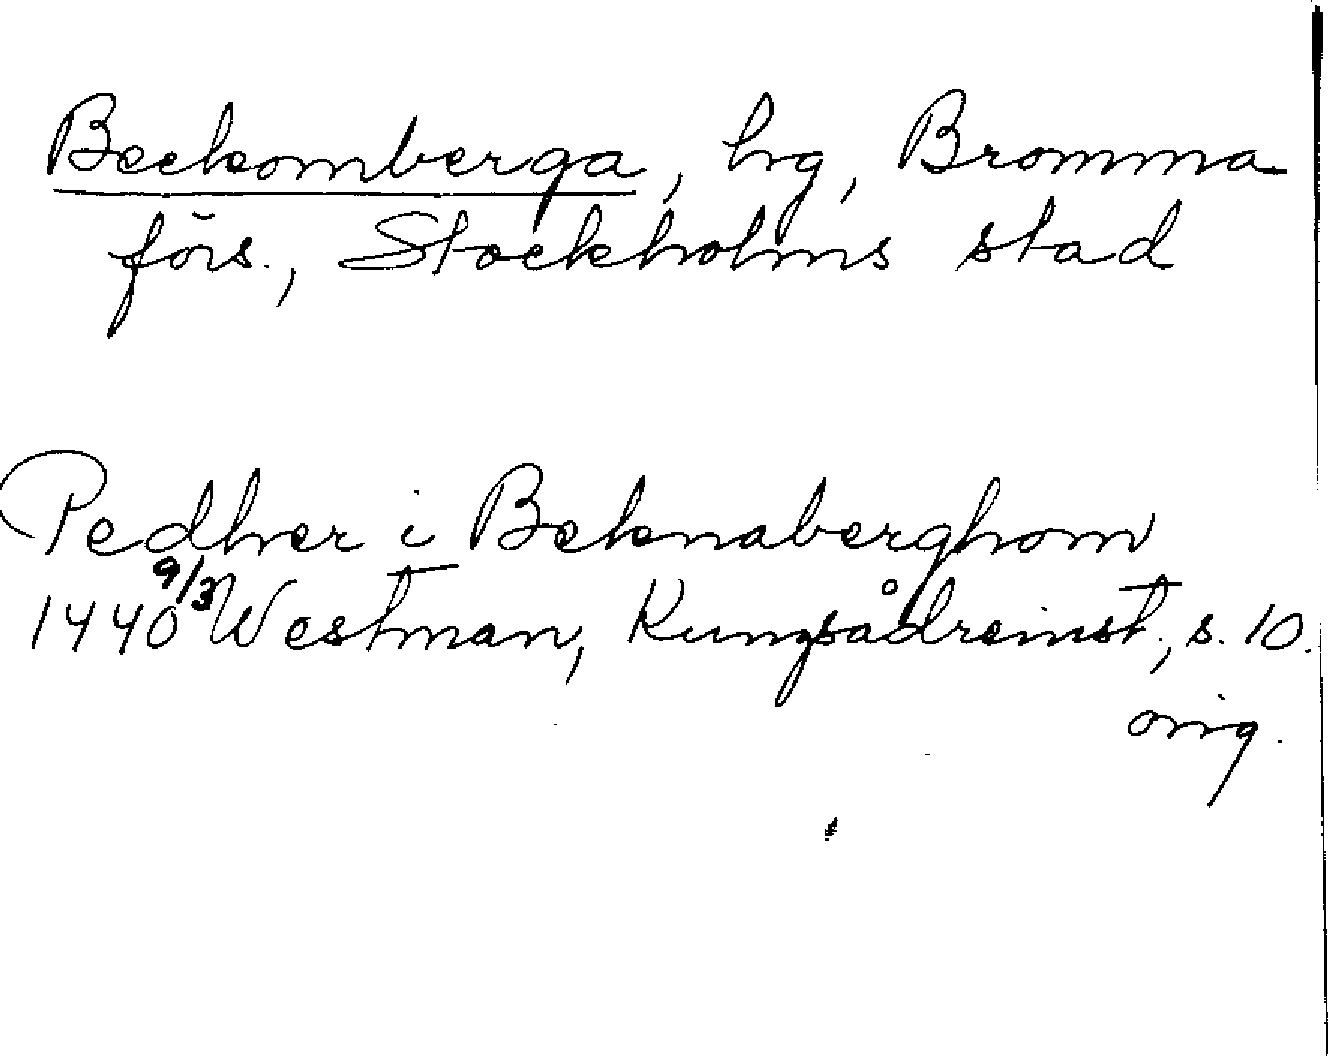 Beckomberga, hg, Bromma
förs., Stockholms stad
Pedher i Beknaberghom
1440 9/3 Westman, Kungsådreinst., s. 10.
orig.